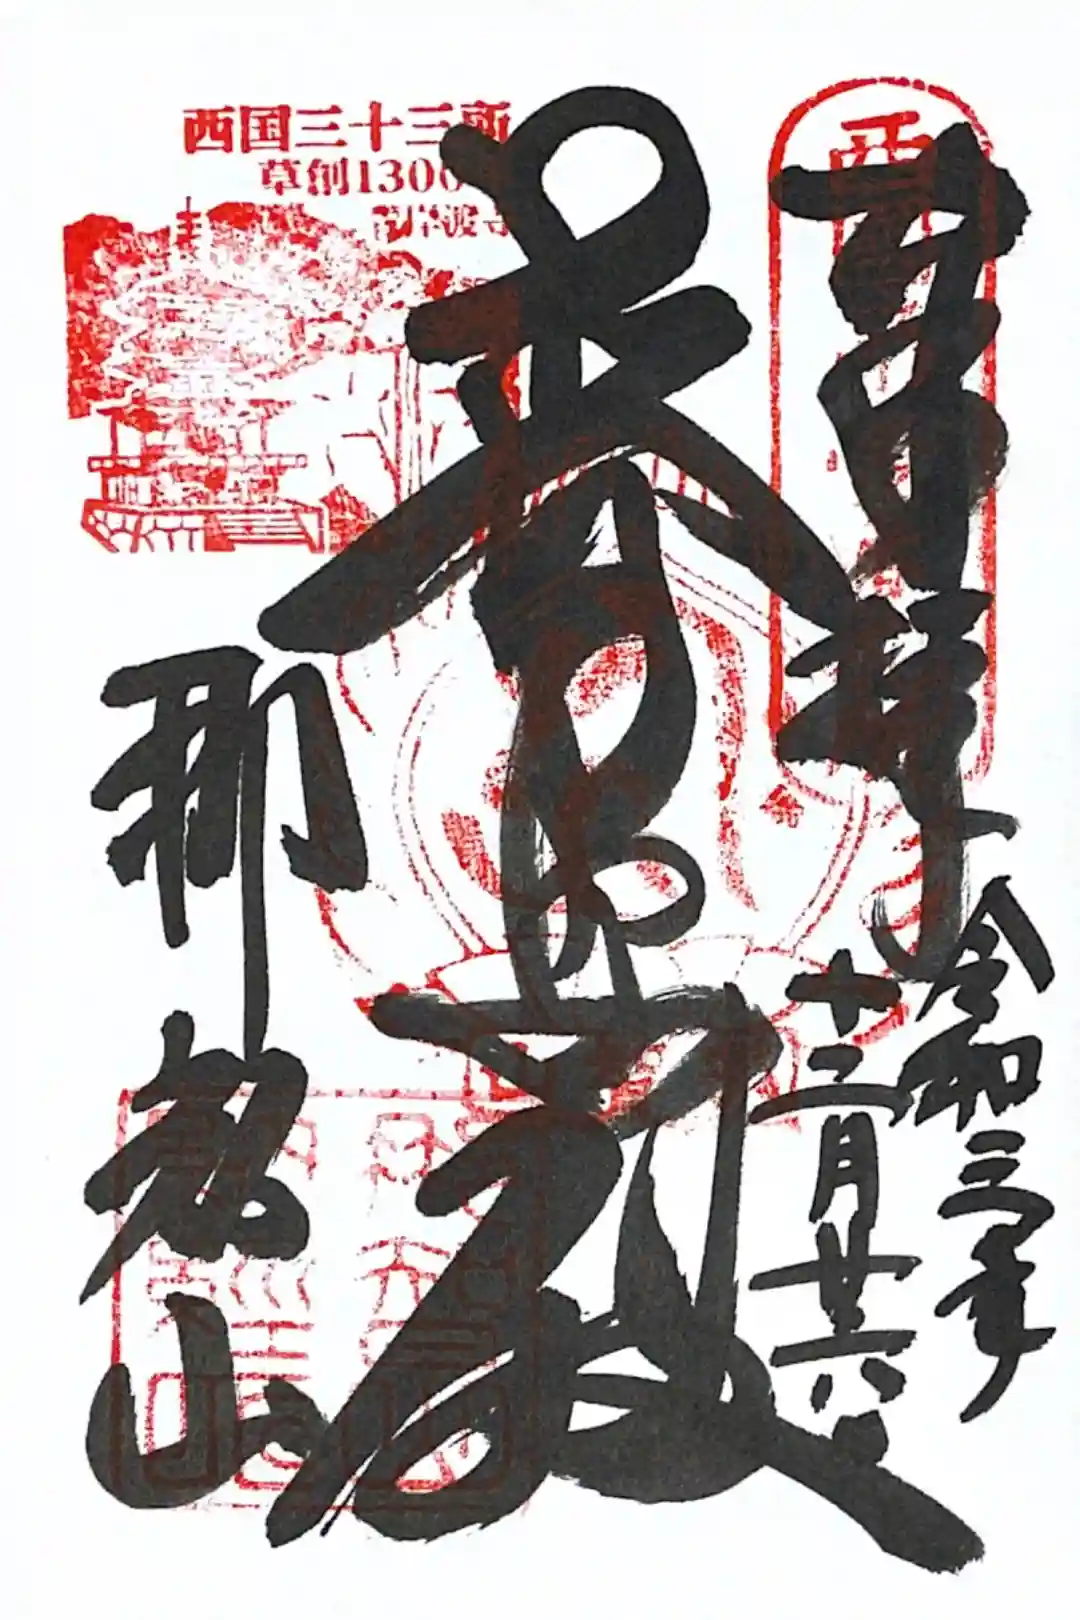 奉拝
令和三年
十二月廿六日
普照殿
西国三十三所
草創1300
青岸渡寺
那智山